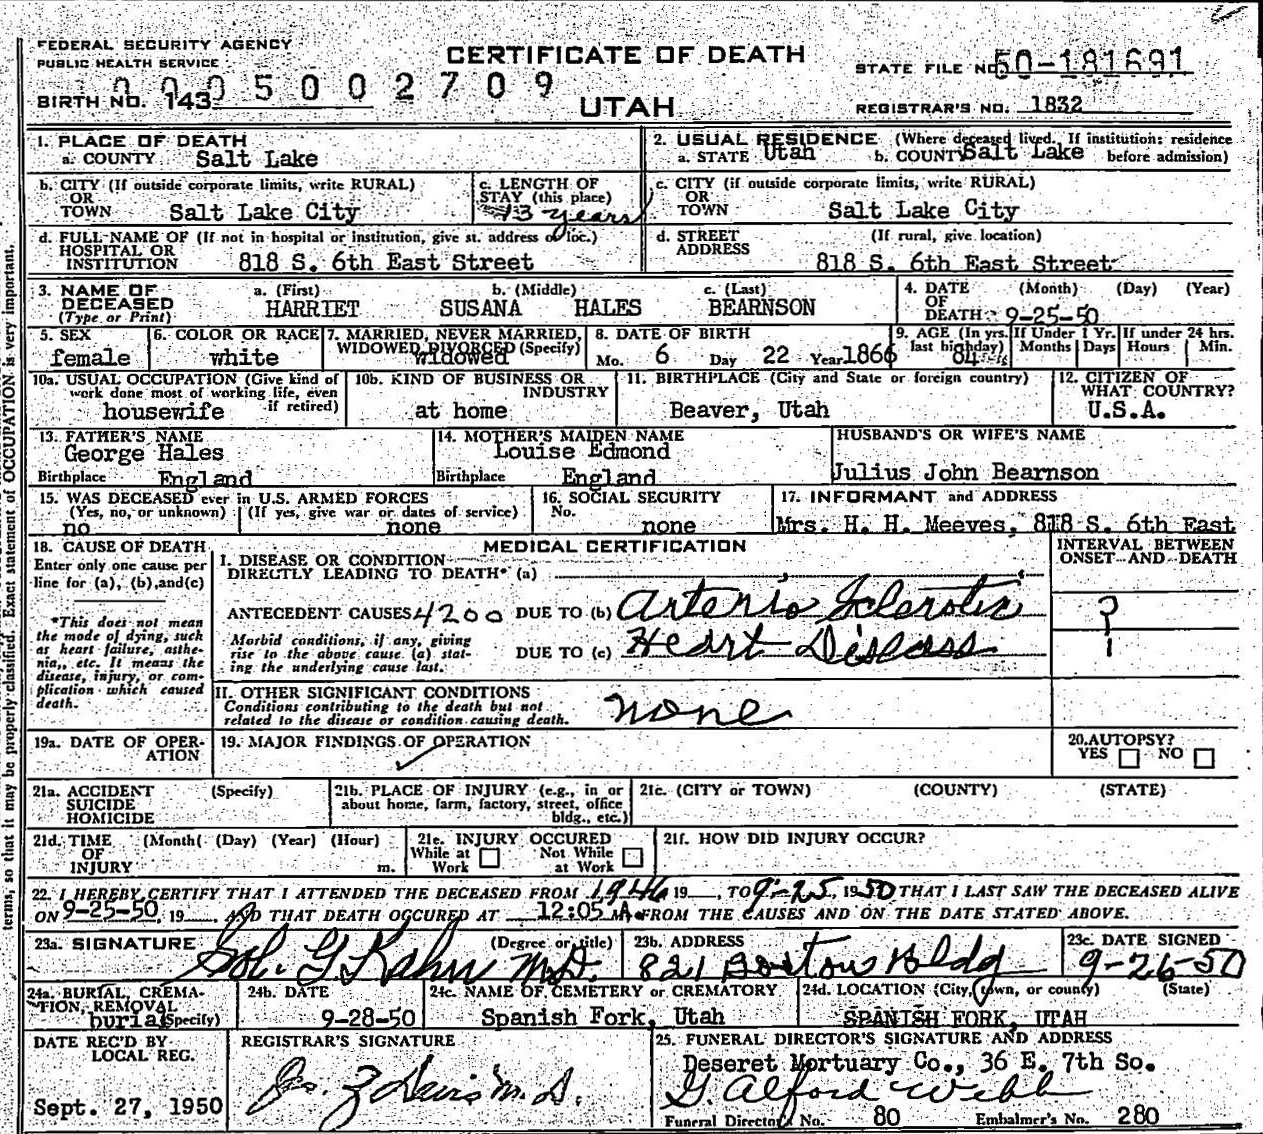 FEDERAL SECURITY AGENCY
PUBLIC HEALTH SERVICE
CERTIFICATE OF DEATH
UTAH
STATE FILE NO. 50-181691
0005002709
BIRTH NO. 143
REGISTRAR'S NO. 1832
1. PLACE OF DEATH
a. COUNTY Salt Lake
2. USUAL RESIDENCE (Where deceased lived. If institution: residence before admission)
a. STATE Utah b. COUNTY Salt Lake
b. CITY (If outside corporate limits, write RURAL)
OR
TOWN Salt Lake City
c. LENGTH OF
STAY (this place)
13 years
c. CITY (if outside corporate limits, write RURAL)
OR
TOWN Salt Lake City
d. FULL NAME OF (If not in hospital or institution, give st. address or loc.)
HOSPITAL OR
INSTITUTION 818 S. 6th East Street
d. STREET (If rural, give location)
ADDRESS 818 S. 6th East Street
3. NAME OF a. (First) b. (Middle) c. (Last)
DECEASED HARRIET SUSANA HALES BEARNSON
(Type or Print)
4. DATE (Month) (Day) (Year)
OF
DEATH 9-25-50
5. SEX
female
6. COLOR OR RACE
white
7. MARRIED, NEVER MARRIED,
WIDOWED, DIVORCED (Specify)
widowed
8. DATE OF BIRTH
Mo. 6 Day 22 Year 1866
9. AGE (In yrs. last birthday)
84
If Under 1 Yr.
Months Days
If under 24 hrs.
Hours Min.
10a. USUAL OCCUPATION (Give kind of
work done most of working life, even
if retired)
housewife
10b. KIND OF BUSINESS OR
INDUSTRY
at home
11. BIRTHPLACE (City and State or foreign country)
Beaver, Utah
12. CITIZEN OF
WHAT COUNTRY?
U.S.A.
13. FATHER'S NAME
George Hales
Birthplace England
14. MOTHER'S MAIDEN NAME
Louise Edmond
Birthplace England
HUSBAND'S OR WIFE'S NAME
Julius John Bearnson
15. WAS DECEASED ever in U.S. ARMED FORCES
(Yes, no, or unknown) (If yes, give war or dates of service)
no none
16. SOCIAL SECURITY
No.
none
17. INFORMANT and ADDRESS
Mrs. H. H. Meeves, 818 S. 6th East
18. CAUSE OF DEATH
Enter only one cause per
line for (a), (b), and (c)
*This does not mean
the mode of dying, such
as heart failure, asthe-
nia, etc. It means the
disease, injury, or com-
plication which caused
death.
MEDICAL CERTIFICATION
I. DISEASE OR CONDITION
DIRECTLY LEADING TO DEATH* (a)
ANTECEDENT CAUSES 4200 DUE TO (b) Arterio Sclerotic
Morbid conditions, if any, giving
rise to the above cause (a) stat-
ing the underlying cause last.
DUE TO (c) Heart Disease
INTERVAL BETWEEN
ONSET AND DEATH
?
II. OTHER SIGNIFICANT CONDITIONS
Conditions contributing to the death but not
related to the disease or condition causing death.
none
19a. DATE OF OPER-
ATION
19. MAJOR FINDINGS OF OPERATION
20. AUTOPSY?
YES NO
21a. ACCIDENT (Specify)
SUICIDE
HOMICIDE
21b. PLACE OF INJURY (e.g., in or
about home, farm, factory, street, office
bldg., etc.)
21c. (CITY or TOWN) (COUNTY) (STATE)
21d. TIME (Month( (Day) (Year) (Hour)
OF
INJURY m.
21e. INJURY OCCURED
While at Work Not While at Work
21f. HOW DID INJURY OCCUR?
22. I HEREBY CERTIFY THAT I ATTENDED THE DECEASED FROM 1946 19 TO 9-25, 1950 THAT I LAST SAW THE DECEASED ALIVE
ON 9-25-50, 19 , AND THAT DEATH OCCURED AT 12:05 A M. FROM THE CAUSES AND ON THE DATE STATED ABOVE.
23a. SIGNATURE (Degree or title)
Sol. G Kahn M.D.
23b. ADDRESS
821 Boston Bldg
23c. DATE SIGNED
9-26-50
24a. BURIAL, CREMA-
TION, REMOVAL
burial (Specify)
24b. DATE
9-28-50
24c. NAME OF CEMETERY or CREMATORY
Spanish Fork, Utah
24d. LOCATION (City, town, or county) (State)
SPANISH FORK, UTAH
DATE REC'D BY
LOCAL REG.
Sept. 27, 1950
REGISTRAR'S SIGNATURE
M.D.
25. FUNERAL DIRECTOR'S SIGNATURE AND ADDRESS
Deseret Mortuary Co., 36 E. 7th So.
G. Alford Webb
Funeral Director No. 80 Embalmer's No. 280
terms, so that it may be properly classified. Exact statement of OCCUPATION is very important.